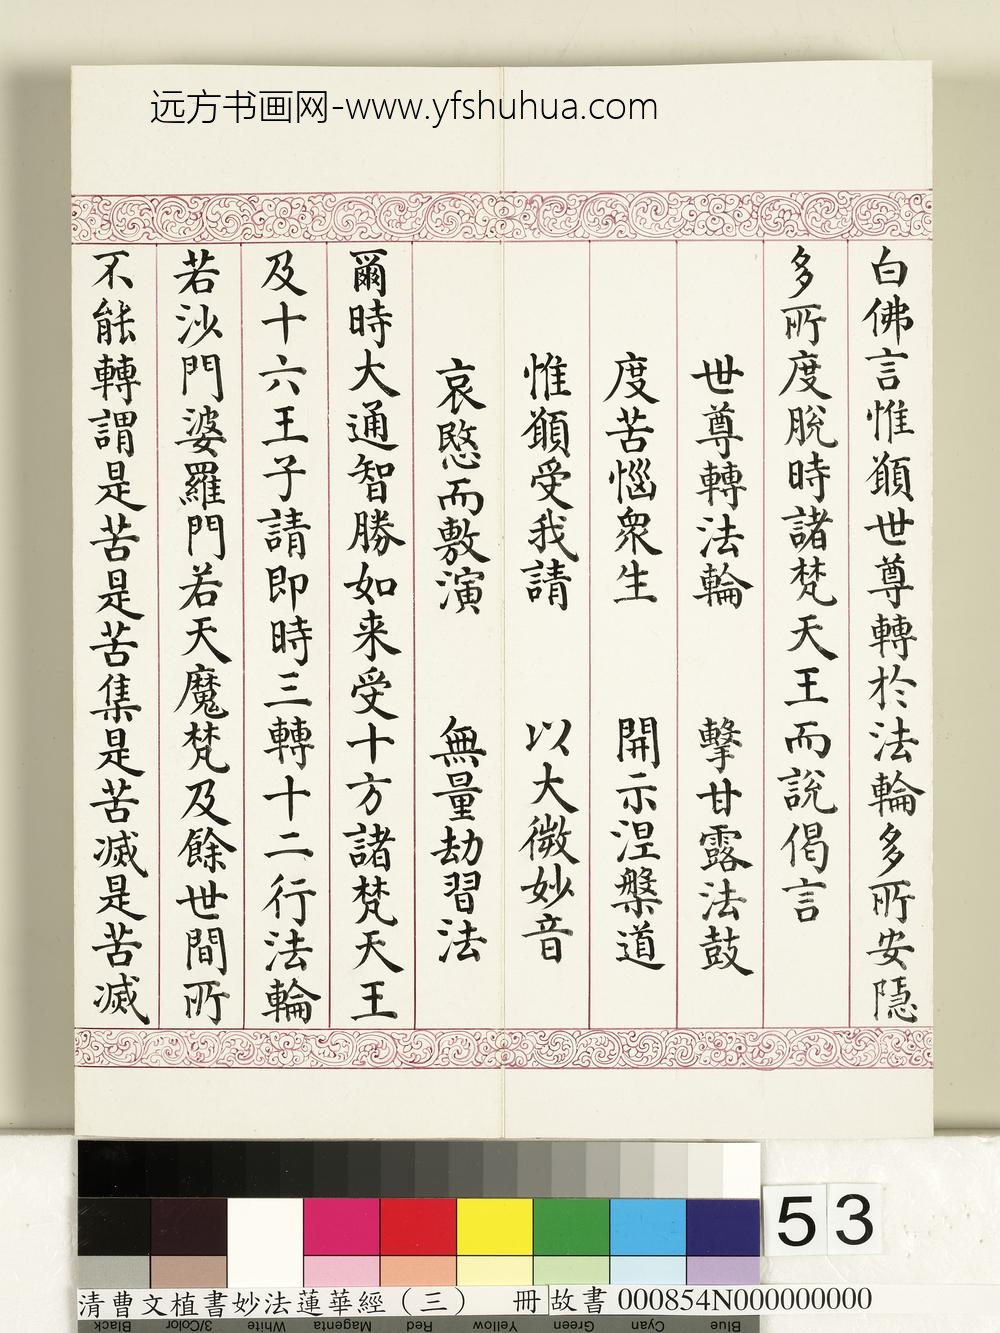 远方书画网-www.yfshuhua.com
白佛言惟願世尊轉於法輪多所安隱
多所度脫時諸梵天王而說偈言
世尊轉法輪　擊甘露法鼓
度苦惱衆生　開示涅槃道
惟願受我請　以大微妙音
哀愍而敷演　無量劫習法
爾時大通智勝如来受十方諸梵天王
及十六王子請即時三轉十二行法輪
若沙門婆羅門若天魔梵及餘世間所
不能轉謂是苦是苦集是苦滅是苦滅
53
清曹文植書妙法蓮華經（三）　冊 故書 000854N000000000
Black 3/Color White Magenta Red Yellow Green Cyan Blue